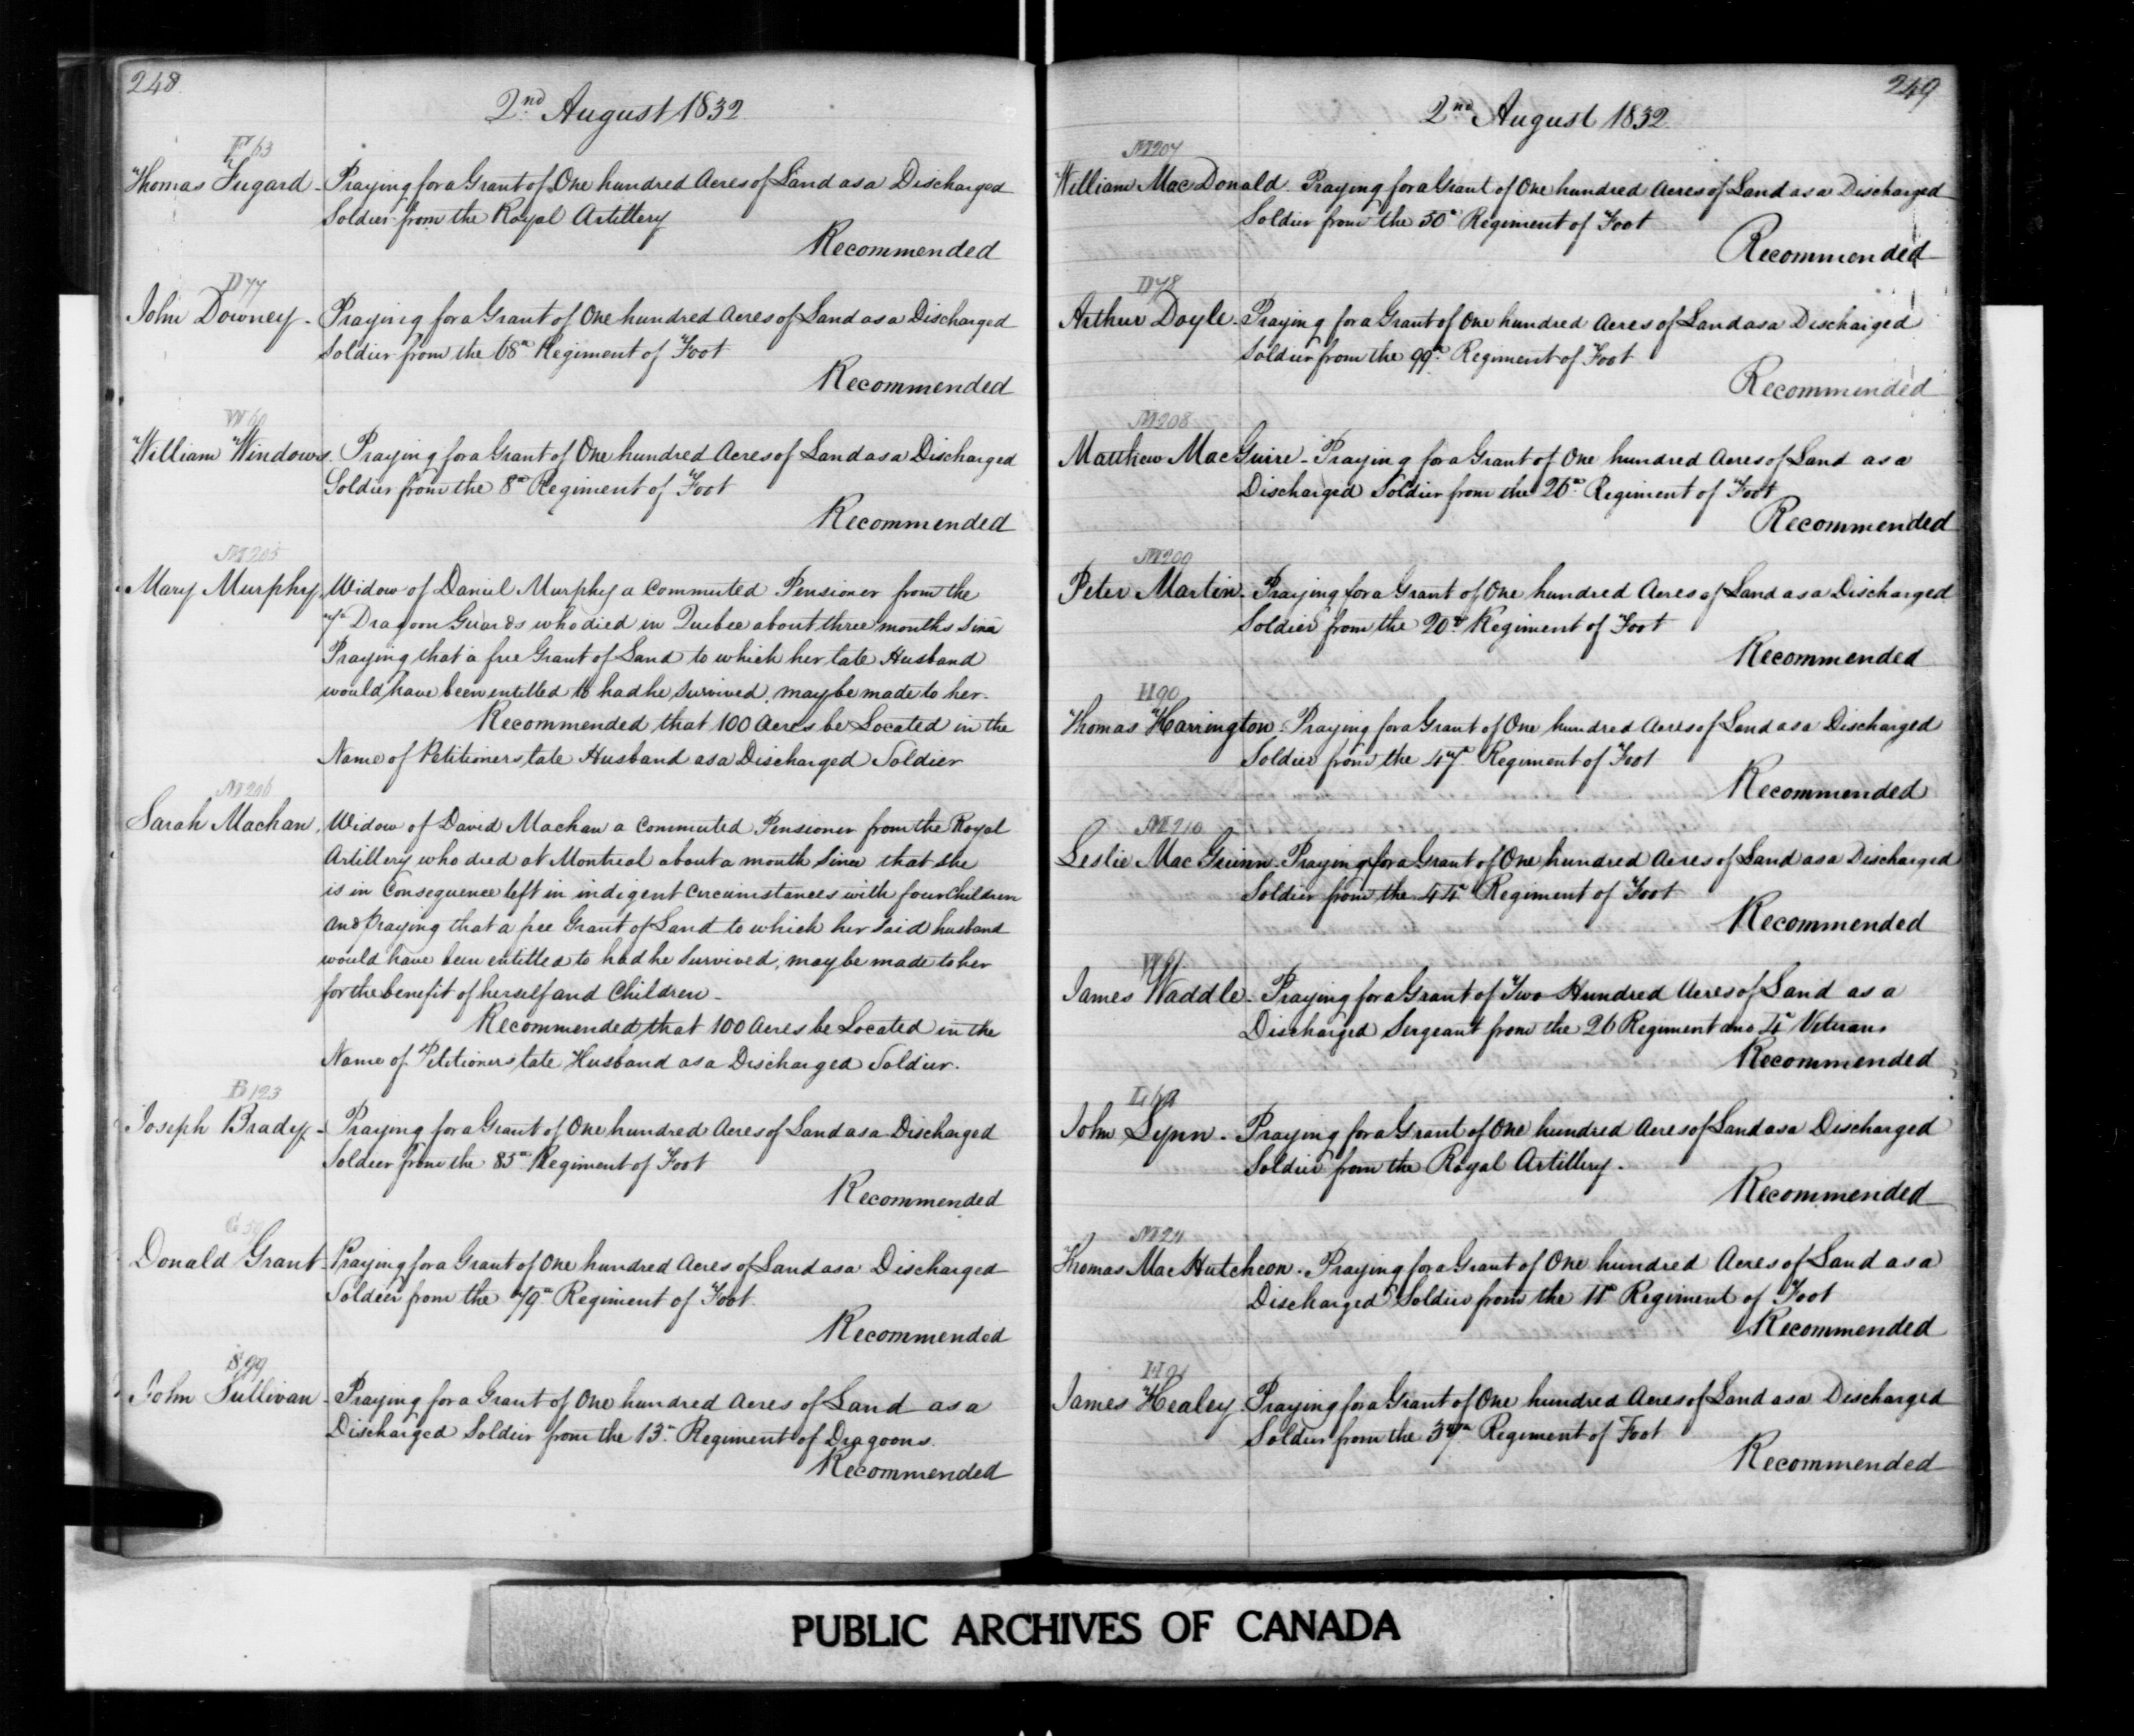 248
2nd August 1832
F 63
Thomas Fugard - Praying for a Grant of One hundred Acres of Land as a Discharged
Soldier from the Royal Artillery
Recommended
D 77
John Downey - Praying for a Grant of One hundred Acres of Land as a Discharged
Soldier from the 68th Regiment of Foot
Recommended
W 60
William Windows. Praying for a Grant of One hundred Acres of Land as a Discharged
Soldier from the 8th Regiment of Foot
Recommended
M 205
Mary Murphy, Widow of Daniel Murphy a Commuted Pensioner from the
7th Dragoon Guards who died in Quebec about three months Since
Praying that a free Grant of Land to which her late Husband
would have been entitled to had he survived may be made to her.
Recommended that 100 Acres be Located in the
Name of Petitioners late Husband as a Discharged Soldier
M 206
Sarah Machan, Widow of David Machan a Commuted Pensioner from the Royal
Artillery who died at Montreal about a month Since that she
is in Consequence left in indigent Circumstances with four Children
and Praying that a free Grant of Land to which her said husband
would have been entitled to had he Survived, may be made to her
for the benefit of herself and Children -
Recommended that 100 Acres be Located in the
Name of Petitioners late Husband as a Discharged Soldier.
B 123
Joseph Brady - Praying for a Grant of One hundred Acres of Land as a Discharged
Soldier from the 85th Regiment of Foot
Recommended
G
Donald Grant - Praying for a Grant of One hundred Acres of Land as a Discharged
Soldier from the 79th Regiment of Foot.
Recommended
S 99
John Sullivan - Praying for a Grant of One hundred Acres of Land as a
Discharged Soldier from the 13th Regiment of Dragoons.
Recommended
249
2nd August 1832
M 207
William MacDonald. Praying for a Grant of One hundred Acres of Land as a Discharged
Soldier from the 50th Regiment of Foot
Recommended
D 78
Arthur Doyle - Praying for a Grant of One hundred Acres of Land as a Discharged
Soldier from the 99th Regiment of Foot
Recommended
M 208
Matthew MacGuire - Praying for a Grant of One hundred Acres of Land as a
Discharged Soldier from the 26th Regiment of Foot
Recommended
M 209
Peter Martin - Praying for a Grant of One hundred Acres of Land as a Discharged
Soldier from the 20th Regiment of Foot
Recommended
H 90
Thomas Harrington - Praying for a Grant of One hundred Acres of Land as a Discharged
Soldier from the 47th Regiment of Foot
Recommended
M 210
Leslie MacGuinn - Praying for a Grant of One hundred Acres of Land as a Discharged
Soldier from the 44th Regiment of Foot
Recommended
W 61
James Waddle - Praying for a Grant of Two Hundred Acres of Land as a
Discharged Sergeant from the 26 Regiment and 4th Veterans
Recommended
L
John Lynn - Praying for a Grant of One hundred Acres of Land as a Discharged
Soldier from the Royal Artillery.
Recommended
M 211
Thomas MacHutcheon. Praying for a Grant of One hundred Acres of Land as a
Discharged Soldier from the 11th Regiment of Foot
Recommended
H 91
James Healey - Praying for a Grant of One hundred Acres of Land as a Discharged
Soldier from the 37th Regiment of Foot
Recommended
PUBLIC ARCHIVES OF CANADA